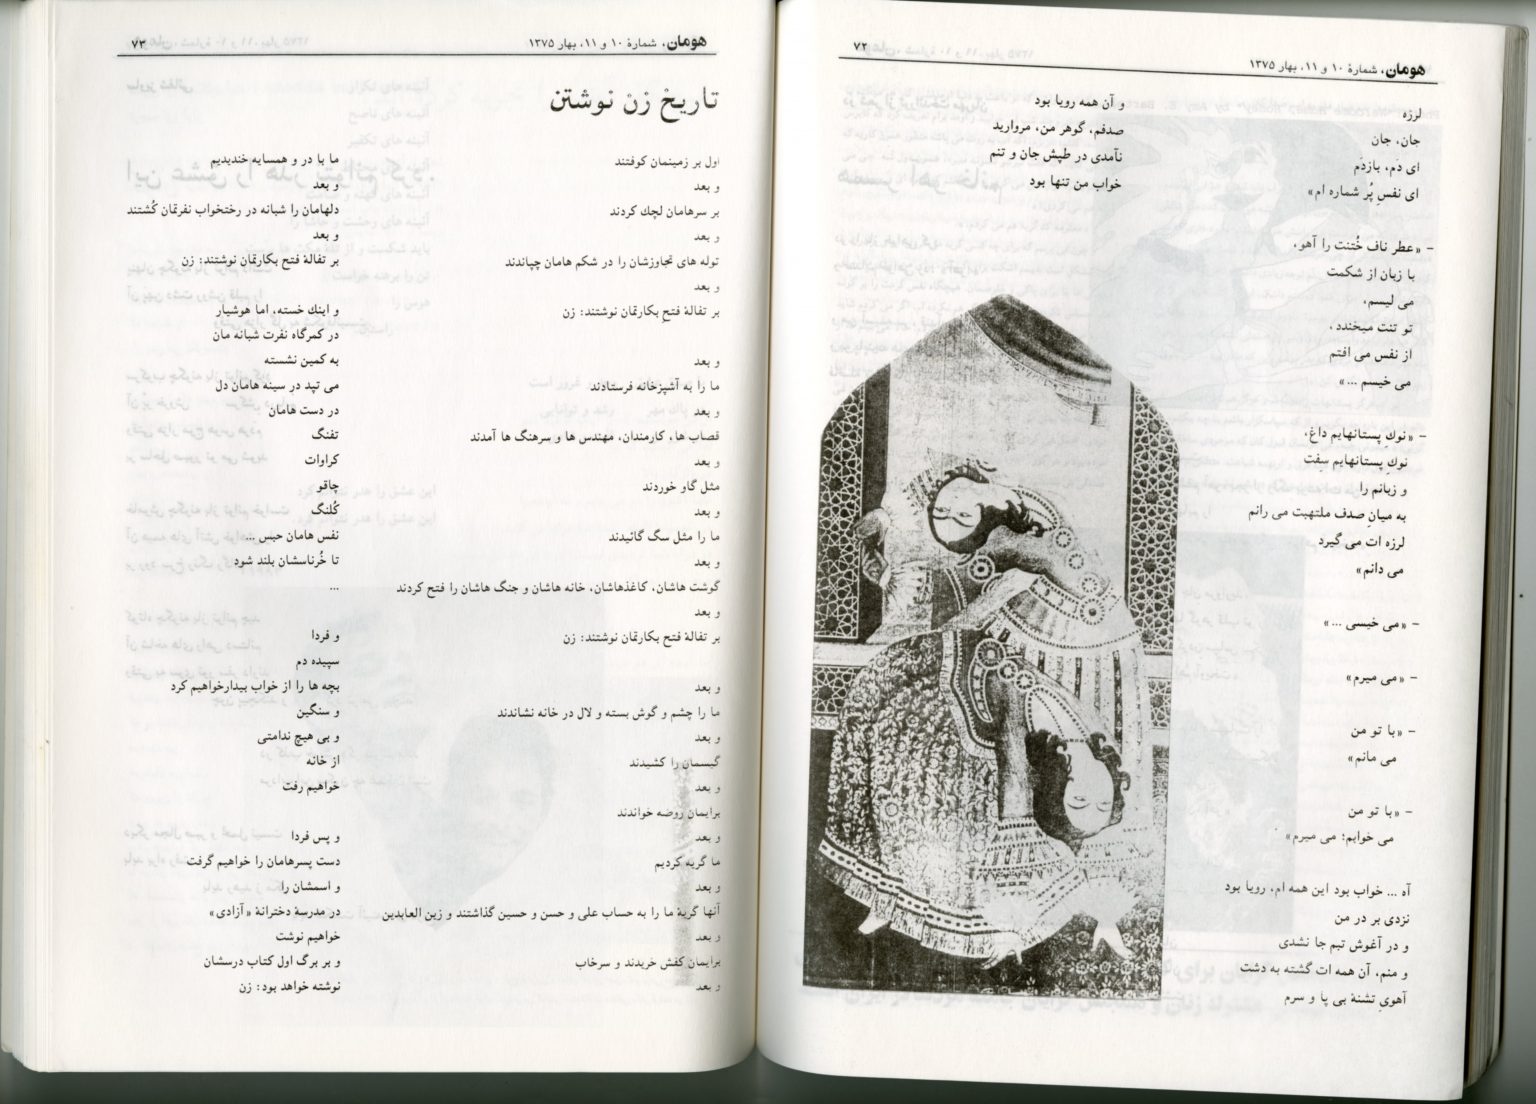 هومان، شمارهٔ ۱۰ و ۱۱، بهار ۱۳۷۵
۷۲
لرزه
جان، جان
ای دَم، بازدَم
ای نفسِ پُر شماره ام»
– «عطر ناف خُتنت را آهو،
با زبان از شکمت
می لیسم،
تو تنت میخندد،
از نفس می افتم
می خیسم ...»
– «نوك پستانهایم داغ،
نوك پستانهایم سِفت
و زبانم را
به میانِ صدف ملتهبت می رانم
لرزه ات می گیرد
می دانم»
– «می خیسی ...»
– «می میرم»
– «با تو من
می مانم»
– «با تو من
می خوابم؛ می میرم»
آه ... خواب بود این همه ام، رویا بود
نزدی بر در من
و در آغوش تبم جا نشدی
و منم، آن همه ات گشته به دشت
آهویِ تشنهٔ بی پا و سرم
و آن همه رویا بود
صدفم، گوهر من، مروارید
نآمدی در طپش جان و تنم
خواب من تنها بود
هومان، شمارهٔ ۱۰ و ۱۱، بهار ۱۳۷۵
۷۳
تاریخْ زنْ نوشتن
اول بر زمینمان کوفتند
و بعد
بر سرهامان لچك کردند
و بعد
توله های تجاوزشان را در شکم هامان چپاندند
و بعد
بر تفالهٔ فتحِ بکارتمان نوشتند: زن
و بعد
ما را به آشپزخانه فرستادند
و بعد
قصاب ها، کارمندان، مهندس ها و سرهنگ ها آمدند
و بعد
مثل گاو خوردند
و بعد
ما را مثل سگ گائیدند
و بعد
گوشت هاشان، کاغذهاشان، خانه هاشان و جنگ هاشان را فتح کردند
و بعد
بر تفالهٔ فتح بکارتمان نوشتند: زن
و بعد
ما را چشم و گوش بسته و لال در خانه نشاندند
و بعد
گیسمان را کشیدند
و بعد
برایمان روضه خواندند
و بعد
ما گریه کردیم
و بعد
آنها گریهٔ ما را به حساب علی و حسن و حسین گذاشتند و زین العابدین
و بعد
برایمان کفش خریدند و سرخاب
و بعد
ما با در و همسایه خندیدیم
و بعد
دلهامان را شبانه در رختخواب نفرتمان کُشتند
و بعد
بر تفالهٔ فتح بکارتمان نوشتند: زن
و اینك خسته، اما هوشیار
در کمرگاه نفرت شبانه مان
به کمین نشسته
می تپد در سینه هامان دل
در دست هامان
تفنگ
کراوات
چاقو
کُلنگ
نفس هامان حبس ...
تا خُرناسشان بلند شود
...
و فردا
سپیده دم
بچه ها را از خواب بیدارخواهیم کرد
و سنگین
و بی هیچ ندامتی
از خانه
خواهیم رفت
و پس فردا
دست پسرهامان را خواهیم گرفت
و اسمشان را
در مدرسهٔ دخترانهٔ «آزادی»
خواهیم نوشت
و بر برگ اول کتاب درسشان
نوشته خواهد بود: زن